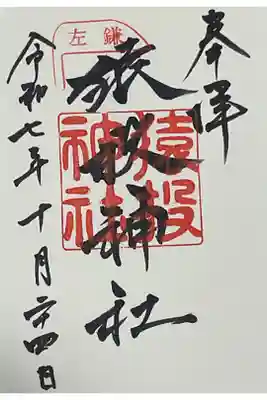 奉拝
左鎌
猿投神社
猿投
神社
令和七年十月廿四日